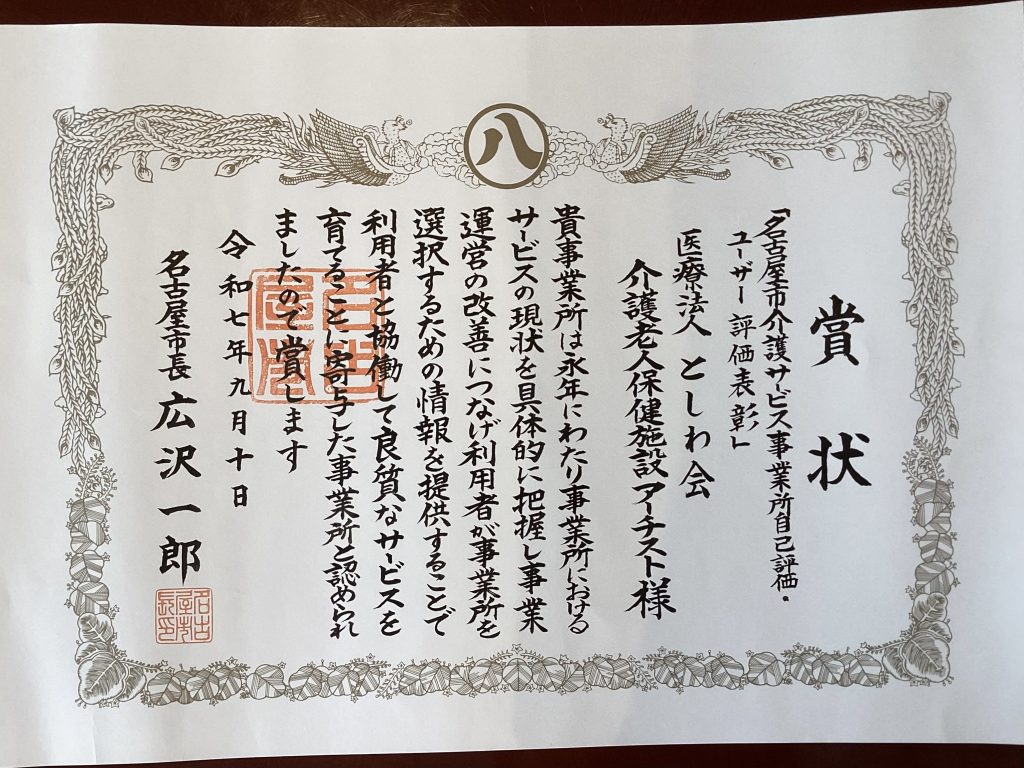 八
賞状
「名古屋市介護サービス事業所自己評価・
ユーザー評価表彰」
医療法人 としわ会
介護老人保健施設アーチスト様
貴事業所は永年にわたり事業所における
サービスの現状を具体的に把握し事業
運営の改善につなげ利用者が事業所を
選択するための情報を提供することで
利用者と協働して良質なサービスを
育てることに寄与した事業所と認められ
ましたので賞します
令和七年九月十日
名古屋市長 広沢一郎
名古屋市長印